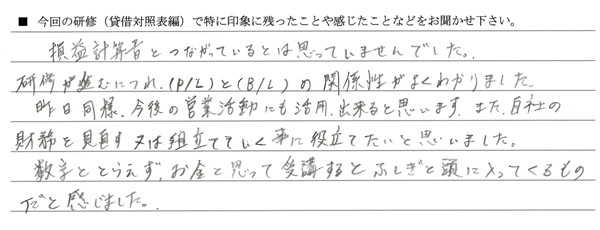 ■ 今回の研修（貸借対照表編）で特に印象に残ったことや感じたことなどをお聞かせ下さい。
損益計算書とつながっているとは思っていませんでした。
研修が進むにつれ、(P/L)と(B/L)の関係性がよくわかりました。
昨日同様、今後の営業活動にも活用出来ると思います。また、自社の
財務を見直す又は組立てていく事に役立てたいと思いました。
数字ととらえず、お金と思って受講するとふしぎと頭に入ってくるもの
だと感じました。